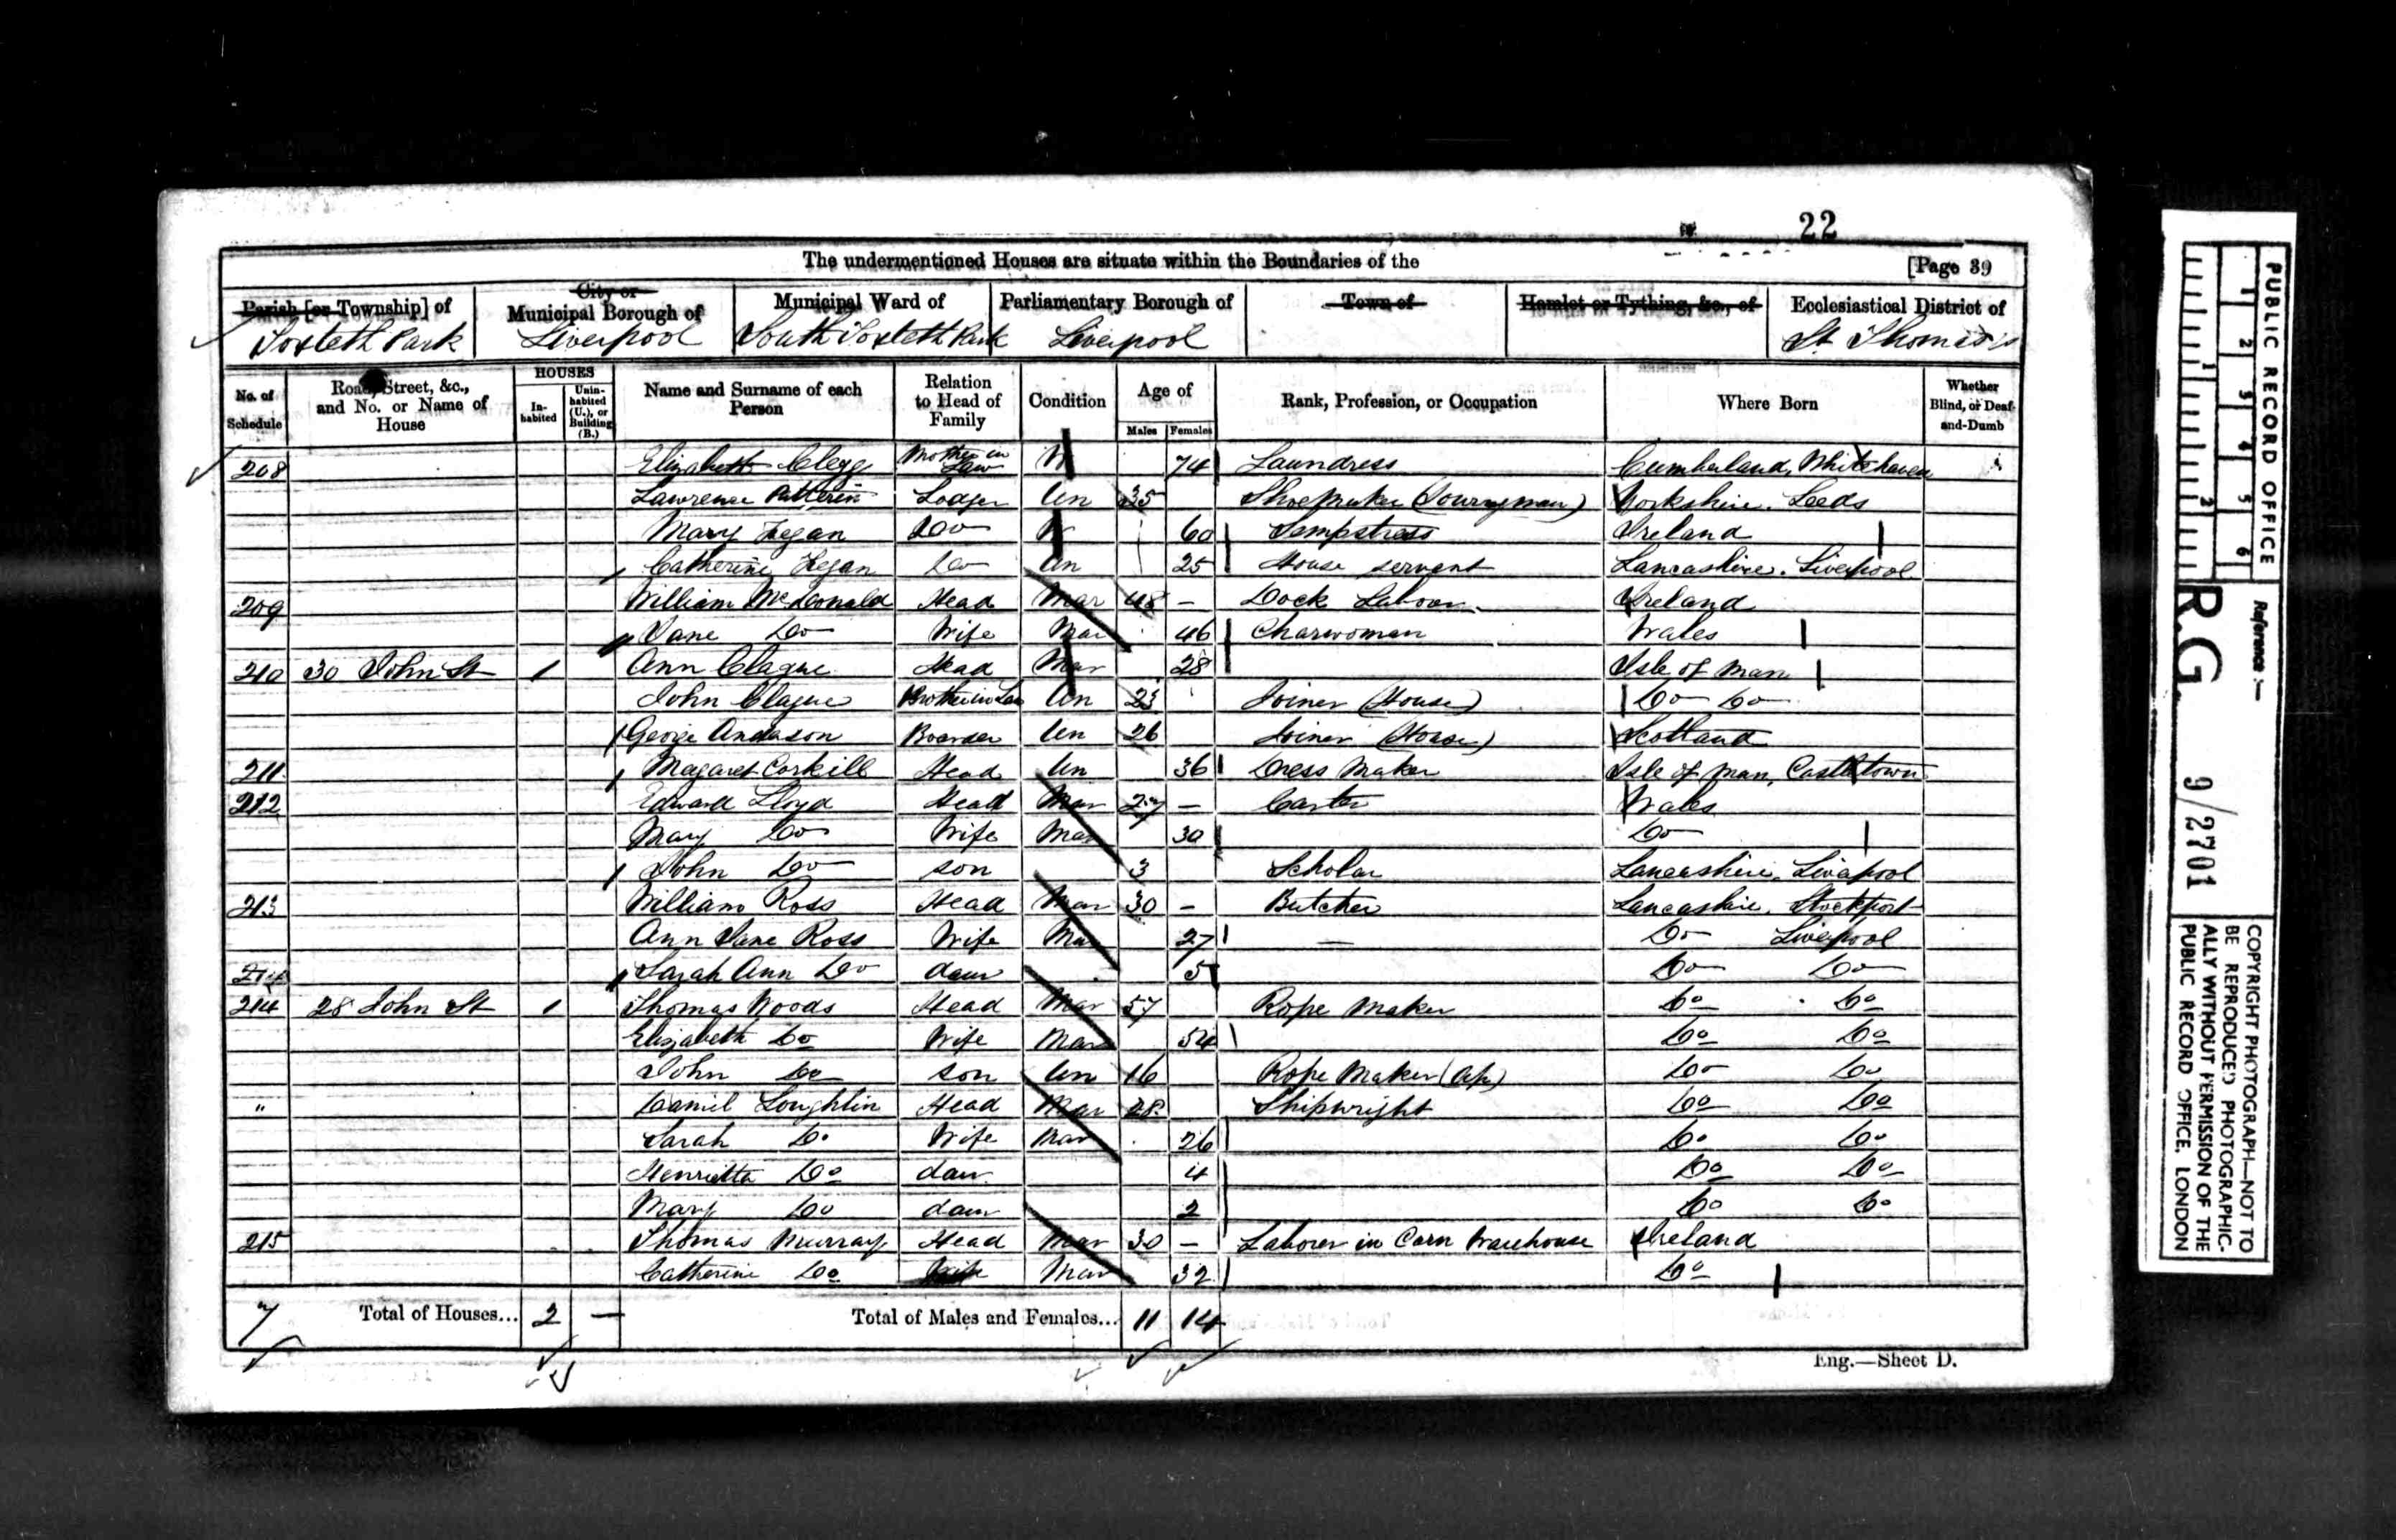 22
The undermentioned Houses are situate within the Boundaries of the
[Page 39
Parish [or Township] of
Toxteth Park
City or
Municipal Borough of
Liverpool
Municipal Ward of
South Toxteth Park
Parliamentary Borough of
Liverpool
Town of
Hamlet or Tything, &c., of
Ecclesiastical District of
St Thomas's
No. of Schedule
Road, Street, &c., and No. or Name of House
HOUSES
Inhabited
Uninhabited (U.), or Building (B.)
Name and Surname of each Person
Relation to Head of Family
Condition
Age of
Males Females
Rank, Profession, or Occupation
Where Born
Whether Blind, or Deaf-and-Dumb
208 Elizabeth Clegg Mother in Law W 74 Laundress Cumberland, Whitehaven
Lawrence Lodger Un 35 Shoemaker (Journeyman) Yorkshire. Leeds
Mary Fegan Do W 60 Sempstress Ireland
Catherine Fegan Do Un 25 House servant Lancashire. Liverpool
209 William McDonald Head Mar 48 - Dock Labour Ireland
Jane Do Wife Mar 46 Charwoman Wales
210 30 John St 1 Ann Clague Head Mar 28 Isle of Man
John Clague Brother in Law Un 23 Joiner (House) Do Do
George Anderson Boarder Un 26 Joiner (House) Scotland
211 Margaret Corkill Head Un 36 Dress Maker Isle of Man, Castletown
212 Edward Lloyd Head Mar 27 - Carter Wales
Mary Do Wife Mar 30 Do
John Do son 3 Scholar Lancashire. Liverpool
213 William Ross Head Mar 30 - Butcher Lancashire. Stockport
Ann Jane Ross Wife Mar 27 - Do Liverpool
214 Sarah Ann Do daur 5 Do Do
214 28 John St 1 Thomas Woods Head Mar 57 Rope Maker Do Do
Elizabeth Do Wife Mar 54 Do Do
John Do son Un 16 Rope Maker (Ap) Do Do
" Daniel Loughlin Head Mar 28 Shipwright Do Do
Sarah Do Wife Mar 26 Do Do
Henrietta Do daur 4 Do Do
Mary Do daur 2 Do Do
215 Thomas Murray Head Mar 30 - Laborer in Corn Warehouse Ireland
Catherine Do Wife Mar 32 Do
7 Total of Houses... 2 - Total of Males and Females... 11 14
Eng.—Sheet D.
PUBLIC RECORD OFFICE
1 2 3 4 5 6
1 2
Reference :—
R.G. 9/2701
COPYRIGHT PHOTOGRAPH—NOT TO
BE REPRODUCED PHOTOGRAPHIC-
ALLY WITHOUT PERMISSION OF THE
PUBLIC RECORD OFFICE, LONDON